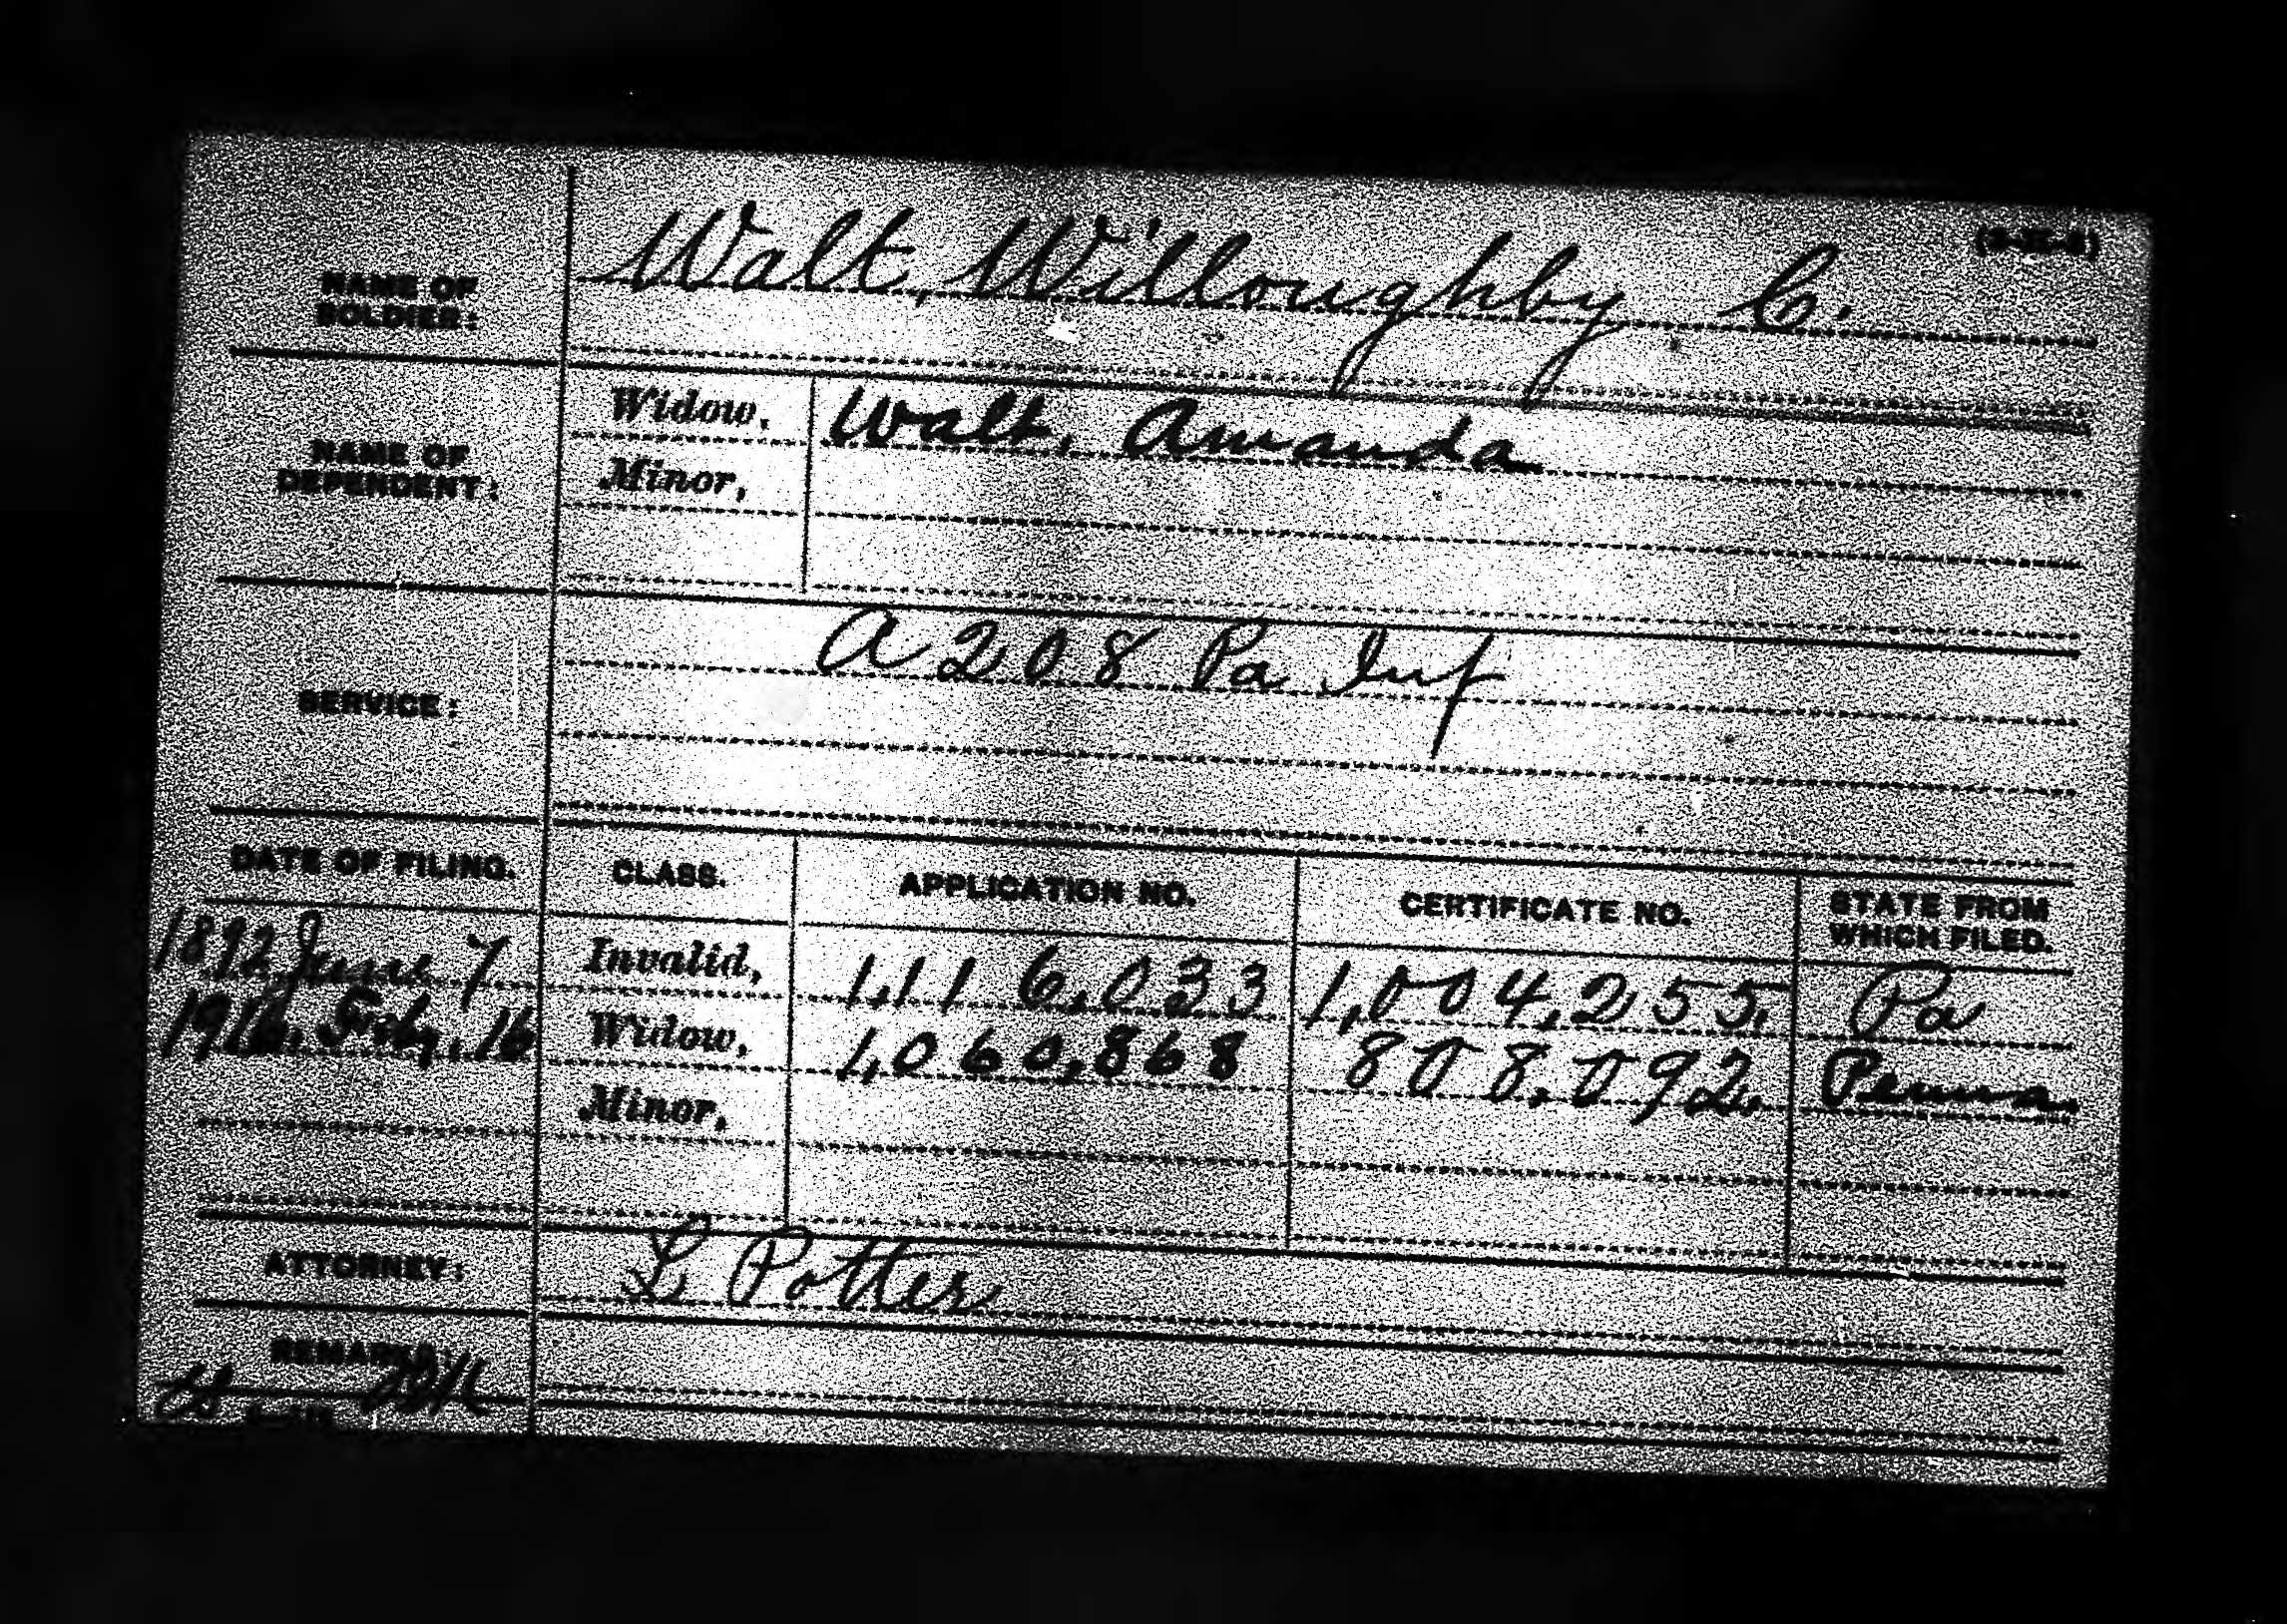 Walt, Willoughby C.
NAME OF
SOLDIER:
Widow, Walt, Amanda
NAME OF
DEPENDENT:
Minor,
A 208 Pa Inf
SERVICE:
DATE OF FILING. CLASS. APPLICATION NO. CERTIFICATE NO. STATE FROM
WHICH FILED.
1892 June 7 Invalid, 1,116,033 1,004,255. Pa
1916. Feby. 16 Widow, 1,060,868 808,092. Penna.
Minor,
ATTORNEY: L Potter
REMARKS: